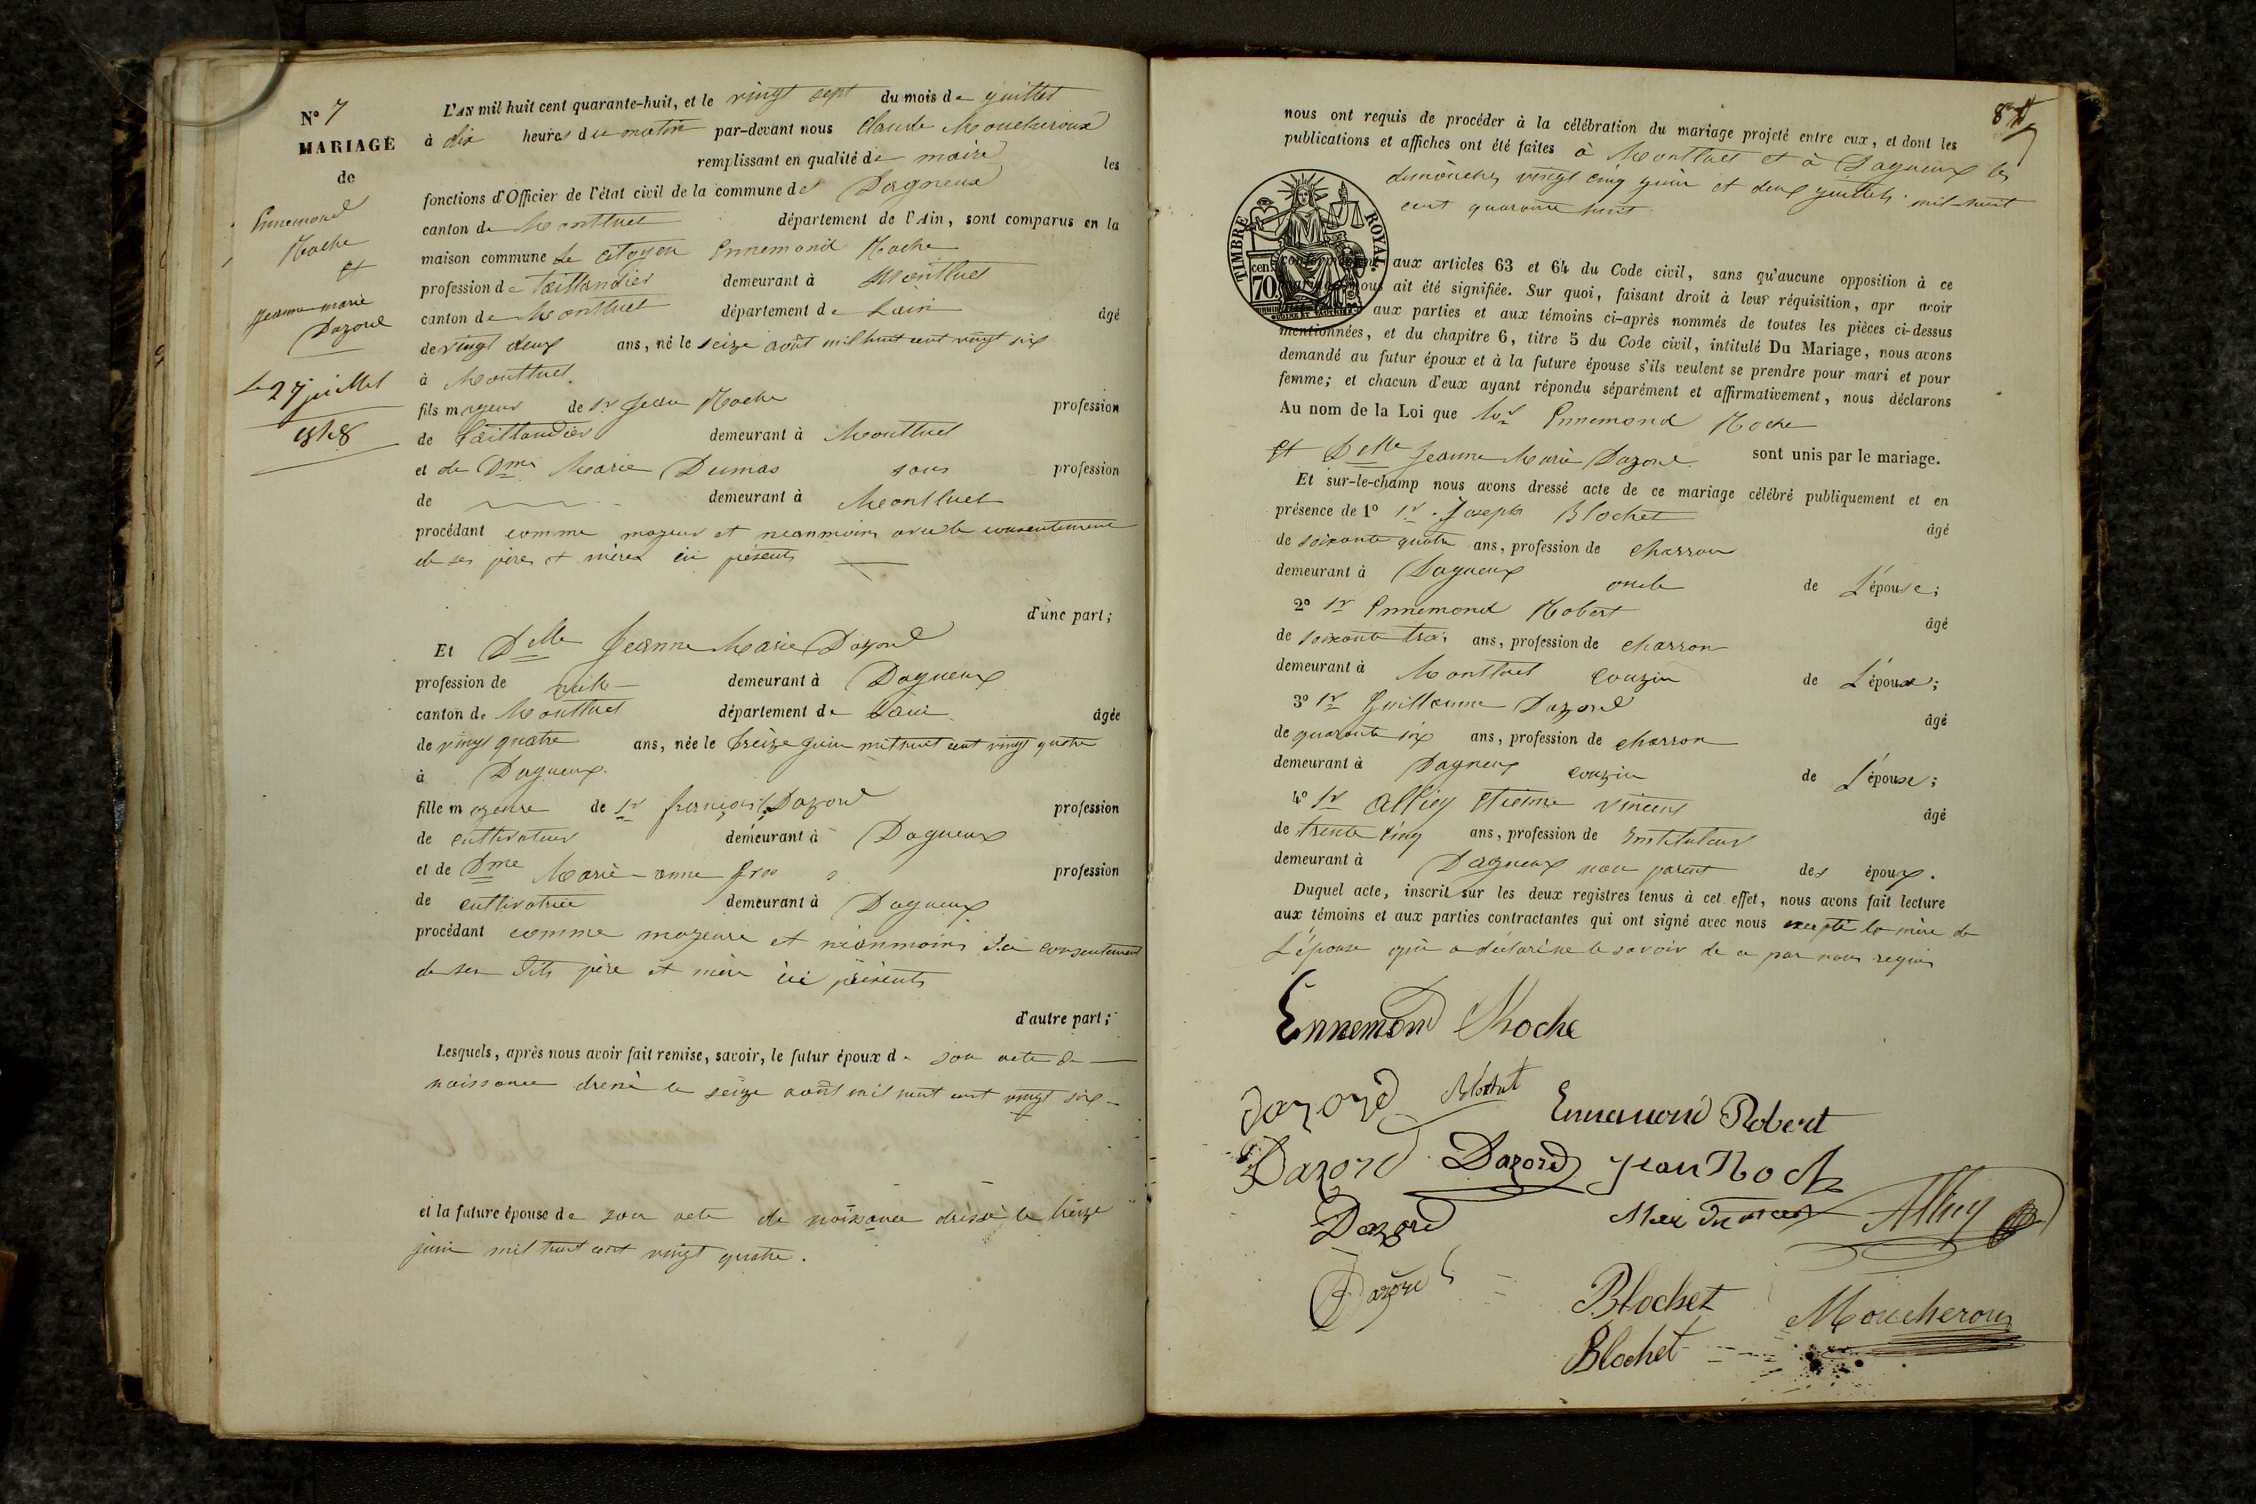 N° 7
MARIAGE
de
Ennemond
Roche
et
Jeanne marie
Dazord
Le 27 juillet
1848
L'AN mil huit cent quarante-huit, et le vingt sept du mois de juillet
à dix heures du matin par-devant nous Claude Moucheroux
remplissant en qualité de maire les
fonctions d'Officier de l'état civil de la commune de Dagneux
canton de Montluel département de l'Ain, sont comparus en la
maison commune Le citoyen Ennemond Roche
profession de taillandier demeurant à Montluel
canton de Montluel département de Lain âgé
de vingt deux ans, né le seize août mil huit cent vingt six
à Montluel
fils majeur de Sr Jean Roche profession
de Taillandier demeurant à Montluel
et de Dme Marie Dumas sans profession
de demeurant à Montluel
procédant comme majeur et néanmoins avec le consentement
de ses père et mère ici présents
d'une part;
Et Delle Jeanne Marie Dazord
profession de nulle demeurant à Dagneux
canton de Montluel département de Lain âgée
de vingt quatre ans, née le treize juin mil huit cent vingt quatre
à Dagneux
fille majeure de Sr françois Dazord profession
de cultivateur demeurant à Dagneux
et de Dme Marie-anne profession
de cultivatrice demeurant à Dagneux
procédant comme majeure et néanmoins du consentement
de ses dits père et mère ici présents
d'autre part;
Lesquels, après nous avoir fait remise, savoir, le futur époux de son acte de
naissance dressé le seize août mil huit cent vingt six
et la future épouse de son acte de naissance dressé le treize
juin mil huit cent vingt quatre.
nous ont requis de procéder à la célébration du mariage projeté entre eux, et dont les
publications et affiches ont été faites à Montluel et à Dagneux les
dimanches vingt cinq juin et deux juillet mil huit
cent quarante huit
TIMBRE ROYAL
cen. 70
conformément aux articles 63 et 64 du Code civil, sans qu'aucune opposition à ce
mariage nous ait été signifiée. Sur quoi, faisant droit à leur réquisition, apr avoir
aux parties et aux témoins ci-après nommés de toutes les pièces ci-dessus
mentionnées, et du chapitre 6, titre 5 du Code civil, intitulé Du Mariage, nous avons
demandé au futur époux et à la future épouse s'ils veulent se prendre pour mari et pour
femme; et chacun d'eux ayant répondu séparément et affirmativement, nous déclarons
Au nom de la Loi que Mr Ennemond Roche
et Delle Jeanne Marie Dazord sont unis par le mariage.
Et sur-le-champ nous avons dressé acte de ce mariage célébré publiquement et en
présence de 1° Sr Joseph Blochet âgé
de soixante quatre ans, profession de charron
demeurant à Dagneux oncle de L'épouse;
2° Sr Ennemond Robert âgé
de soixante trois ans, profession de charron
demeurant à Montluel couzin de L'époux;
3° Sr Guillaume Dazord âgé
de quarante six ans, profession de charron
demeurant à Dagneux couzin de L'épouse;
4° Sr Alliey Etienne Vincent âgé
de trente cinq ans, profession de Instituteur
demeurant à Dagneux non parent des époux.
Duquel acte, inscrit sur les deux registres tenus à cet effet, nous avons fait lecture
aux témoins et aux parties contractantes qui ont signé avec nous excepté la mère de
L'épouse qui a déclaré ne le savoir de ce par nous requis
Ennemond Roche
Dazord Blochet Ennemond Robert
Dazord Dazord Jean Roche
Dazord Alliey
Dazord
Blochet Moucheroux
Blochet